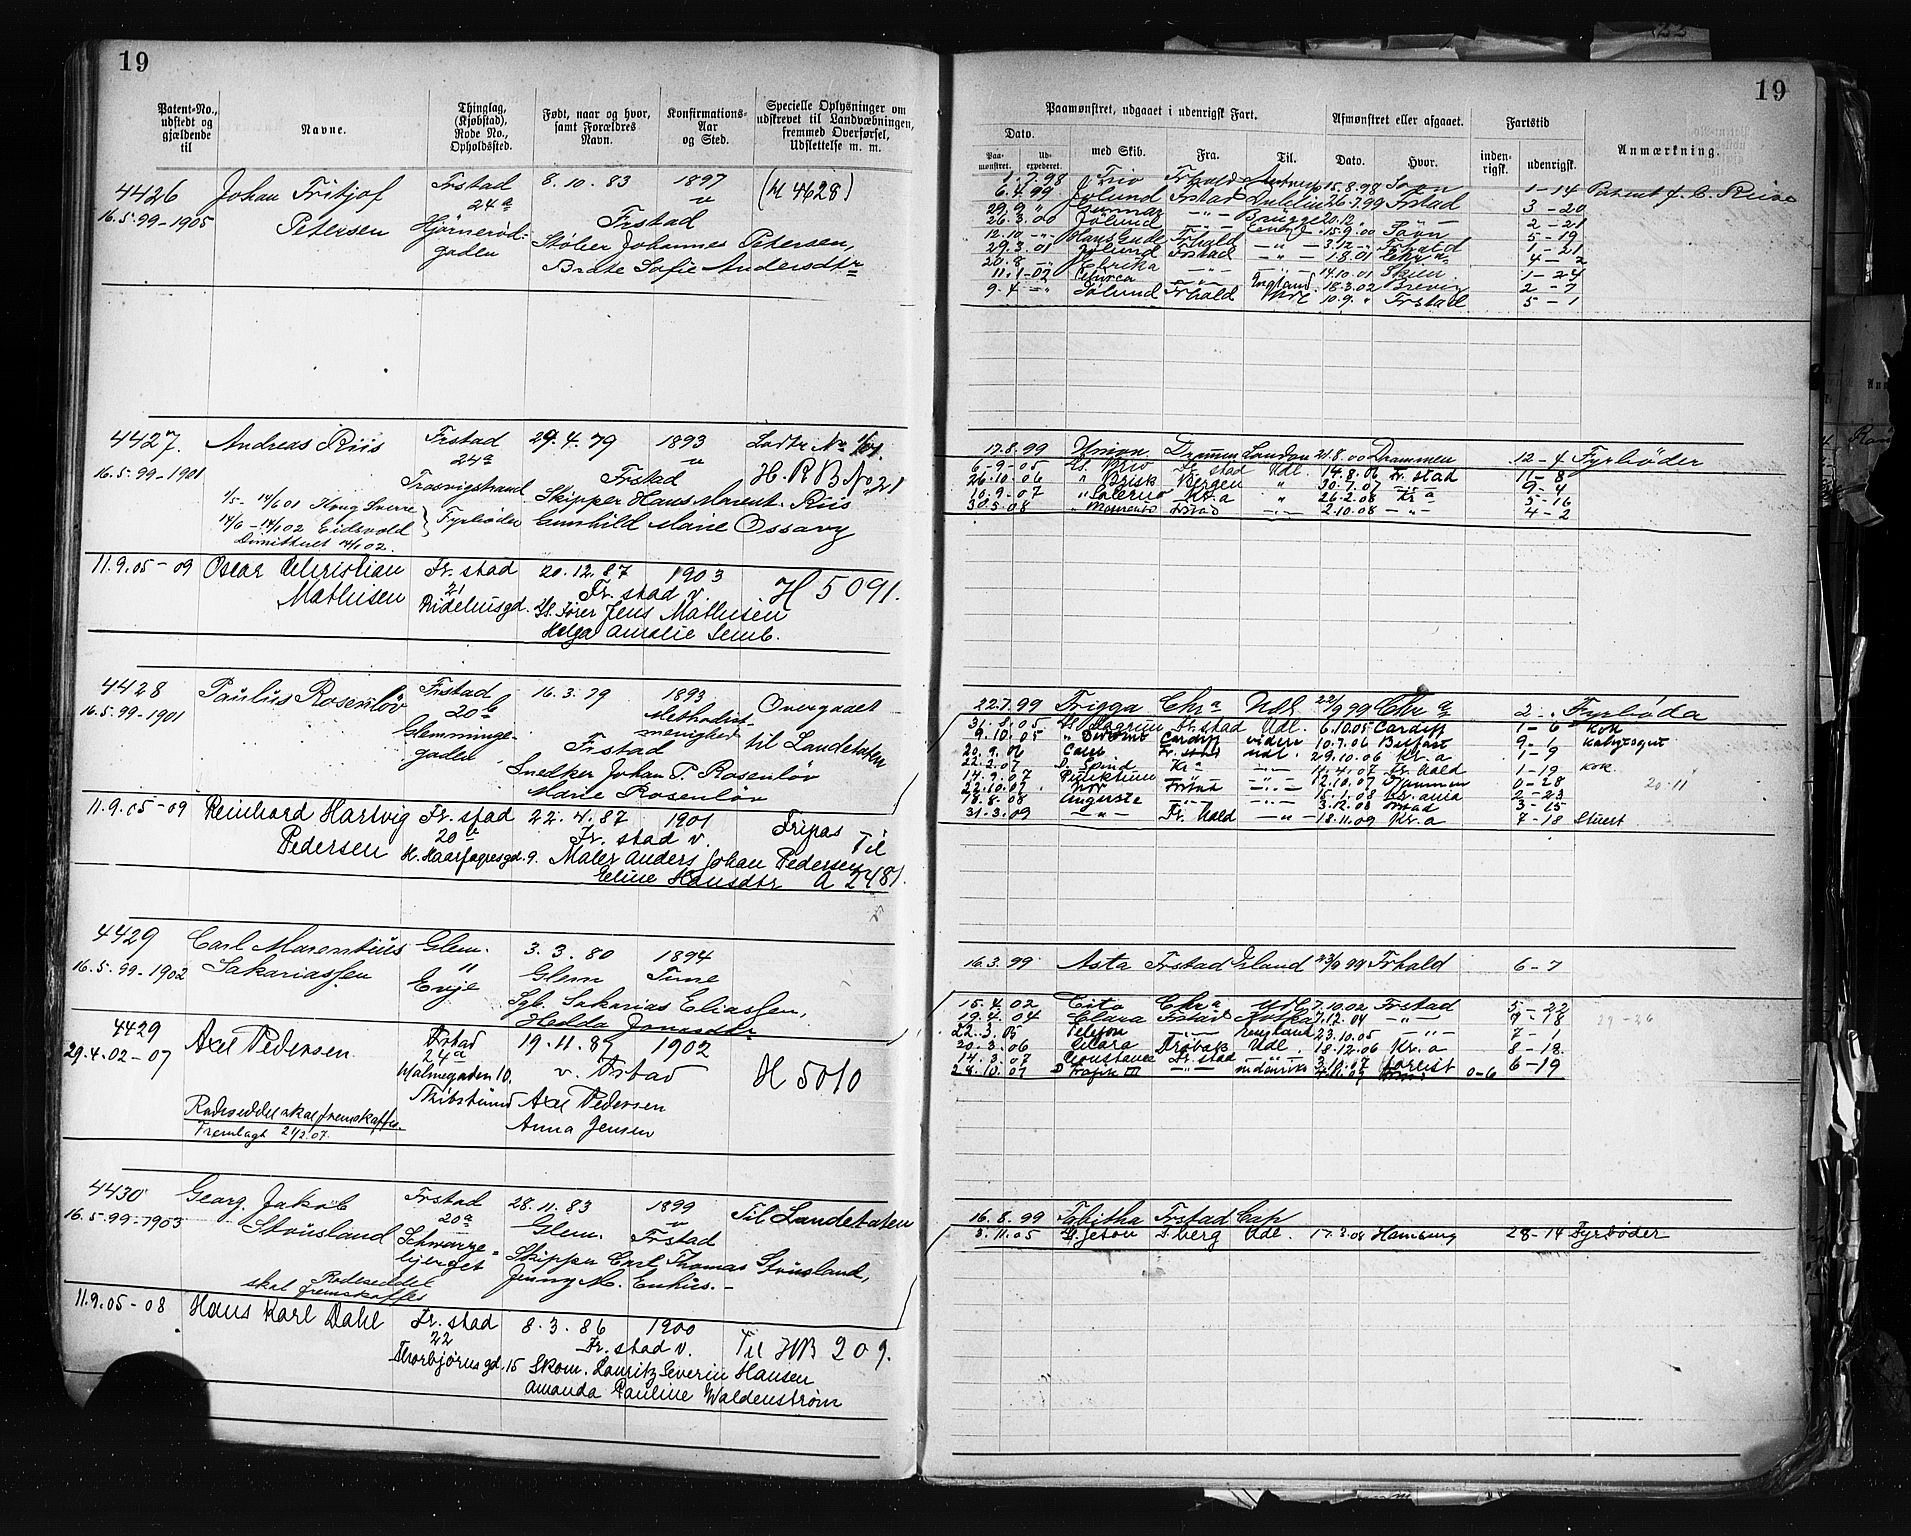 19
Patent-No., udstedt og gjældende til
Navne.
Thinglag, (Kjøbstad), Rode No., Opholdssted.
Født, naar og hvor, samt Forældres Navn.
Konfirmations-Aar og Sted.
Specielle Oplysninger om udskrevet til Landværnningen, fremmed Overførsel, Udslettelse m. m.
4426 Johan Fritjof Frstad 8. 10. 83 1897 (M 4628)
24a v
16.5.99-1905 Petersen Hjørnerød- Frstad
gaden Stølier Johannes Petersen,
Brate Sofie Andersdtr
4427. Andreas Riis Frstad 29. 4. 79 1893
24a v
16.5.99-1901 Trosvigstrand Frstad H. R B No 21
Skipper Hans Marent. Riis
1/5- 14/6 01 Kong Sverre
14/6 - 14/1 02 Eidsvold } Fyrbøder Gunhild Marie Ossavy
Dimitteret 14/1 02.
11.9.05-09 Oscar Christian Fr. stad 20.12.87 1903 H 5091.
Mathisen 21 Fr. stad v.
Ridehusgd. St. Fører Jens Mathisen
Helga Amalie Semb.
4428 Paulus Rosenløv Frstad 16. 3. 79 1893 Overgaaet
16.5.99-1901 20b Methodist-
Glemminge- menighed til Landetaten
gaden Frstad
Snedker Johan P. Rosenløv
Marie Rosenløv
11.9.05-09 Reinhard Hartvig Fr. stad 22. 4. 87 1901 Fripas Til
Pedersen 20b Fr. stad v.
H. Haarfagresgd. 9. Maler Anders Johan Pedersen
Eline Hansdtr A 2481.
4429 Carl Marentius Glem. 3. 3. 80 1894
16.5.99-1902 Sakariassen 11 Glem Tune
Evje Sgb. Sakarias Eliassen,
Hedda Jonasdtr
4429 Axel Pedersen Frstad 19. 11. 87 1902 H 5010
29.4.02-07 24a v. Frstad
Valmegaden 10.
Thibstrund Axel Pedersen
Rodeseddel skal fremskaffes. Anna Jensen
Fremlagt 21/2.07.
4430 Georg Jakob Frstad 28. 11. 83 1899 Til Landetaten
20a v
16.5.99-1903 Stousland Schwarze- Glem. Frstad
bjerget Skipper Carl Thomas Stousland,
Rodeseddel Jenny M. Enhus.-
skal fremskaffes
11.9.05-08 Hans Karl Dahl Fr. stad 8. 3. 86 1900 Til HB 209.
22 Fr. stad v.
Thorbjørnsgd. 15 Skom. Lauritz Severin Hansen
Amanda Pauline Waldenstrøm
19
Paamønstret, udgaaet i udenrigsk Fart.
Afmønstret eller afgaaet.
Fartstid
Anmærkning.
Dato.
Paa-mønstret. Ud-expederet. med Skib. Fra. Til. Dato. Hvor. inden-rigsk. udenrigsk.
1.7.98 Trio Frhald Antwerp 15.8.98 Sogn 1-14 Patent f. C. Riise
6.4.99 Jølund Frstad 26.7.99 Frstad 3-20
29.9 " Gunnar -"- Brügge 20.12 -"- 2-21
26.3.00 Jølund -"- 15.9.00 5-19
12.10 -"- Frhald -"- 3.12 " Frhald 1-21
29.3.01 Jølund Frstad -"- 1.8.01 Chria 4-2
20.8 -"- -"- 14.10.01 Skien 1-24
11.1-02 -"- England 18.3.02 Brevig 2-7
9.4 -"- Jølund Frhald 10.9. " Frstad 5-1
17.8.99 Union Drammen London 21.8.00 Drammen 12-4 Fyrbøder
6-9-05 St. Brio Fr stad Udl. 14.8.06 Fr. stad 11-8
26.10.06 " Brisk Bergen " 30.7.07 -"- 9-4
10.9.07 " Salerno Kr.a " 26.2.08 Kr a 5-16
30.5.08 " Momento Frstad -"- 2.10.08 -"- 4-2
22.7.99 Frigga Chra Udl 22/9 99 Chra 2 " Fyrbøda
31.8.05 Fr. stad Udl. 6.10.05 Cardiff 1-6 Kok
9.10.05 Cardiff videre 10.7.06 Belfast 9-1 Kahytsgut
20.9.06 Fr. stad udl. 29.10.06 Kr. a 1-9
22.2.07 D. Spind Kr a -"- 11.4.07 Fr. hald 1-19 Kok
14.9.07 Punktum Fr"ad -"- 12.10.07 Drammen 0-28
22.10.07 Nor Frstad -"- 15.1.08 Kr. ania 2-23
18.8.08 Auguste -"- -"- 3.12.08 Frstad 3-15
31.3.09 -"- Fr. hald -"- 18.11.09 Kr.a 7-18 Stuert
20-11
16.3.99 Asta Frstad Eland 23/9 99 Frhald 6-7
15.4.02 Cito Chra Udl 7.10.02 Frstad 5-22
19.4.04 Clara Frstad 7.12.04 -"- 7-18
22.3.05 Telefon -"- England 23.10.05 -"- 7-1
20.3.06 Clara Drøbak Udl. 18.12.06 Kr. a 8-18
14.3.07 Constance Fr. stad -"- 3.10.07 6-19
28.10.07 D Trafik III -"- indenriks 4.11.07 0-6
29-26
16.8.99 Tabitha Frstad Cap
3.11.05 St. Jeton F.berg Udl. 17.3.08 Hamburg 28-14 Fyrbøder